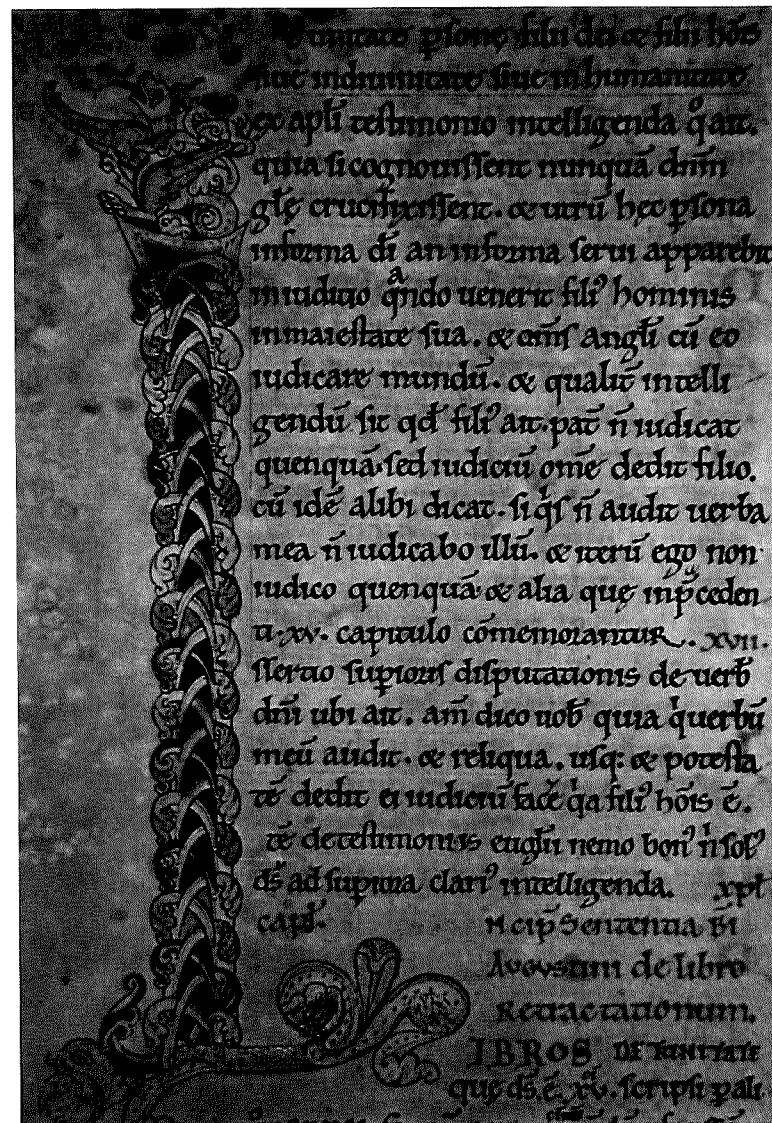 unitate psonę filii dei & filii hōis
siue indiuinitate siue ī humanitate
ex apłi testimonio intelligenda q̊ ait.
quia si cognouissent nunquā dnm̄
głę crucifixissent. & utrū hęc psona
informa dī an informa serui apparebit
iniuditio qᵃndo uenerit filiꝰ hominis
inmaiestate sua. & om̄s angłi cū eo
iudicare mundū. & qualit̄ intelli
gendū sit qd̄ filiꝰ ait. pat̄ n̄ iudicat
quenquā. sed iudiciū om̄e dedit filio.
cū idē alibi dicat. si q̇s n̄ audit uerba
mea n̄ iudicabo illū. & iterū ego non
iudico quenquā & alia quę inp̄ceden
ti .xv. capitulo cōmemorantur. .xvii.
ssertio supioris disputationis de uerb̄
dn̄i ubi ait. am̄ dico uob̄ quia q̇ uerbū
meū audit. & reliqua. usq: & potesta
tē dedit ei iudiciū facē q̇a filiꝰ hōis ē.
tē detestimoniis eugłii nemo bonꝰ n̄ solꝰ
ds̄ ad supiora clariꝰ intelligenda. xpł
capł. Incip̄ Sententia BI
Augustini de libro
Retractationum.
IBROS DE TRINITATE
quę ds̄ ē. xv. scripsi p ali